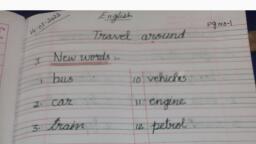 English
Pg no-1
Travel around
I New words:-
1. bus 10 vehicles
2. car 11 engine
3. train 12 petrol